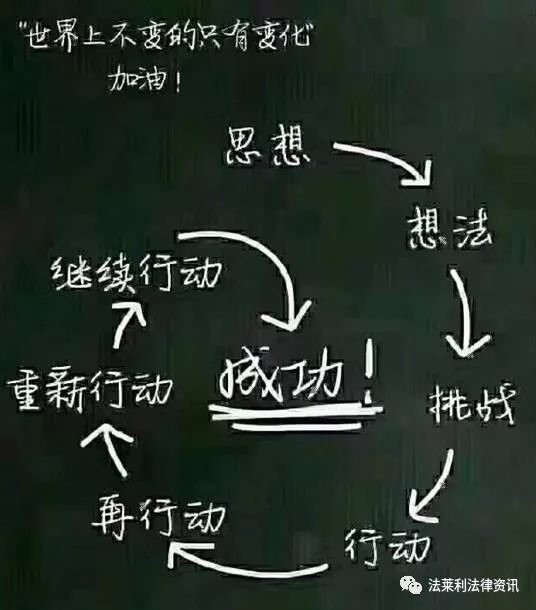 "世界上不变的只有变化"
加油！
思想
想法
挑战
行动
再行动
重新行动
继续行动
成功！
法莱利法律资讯